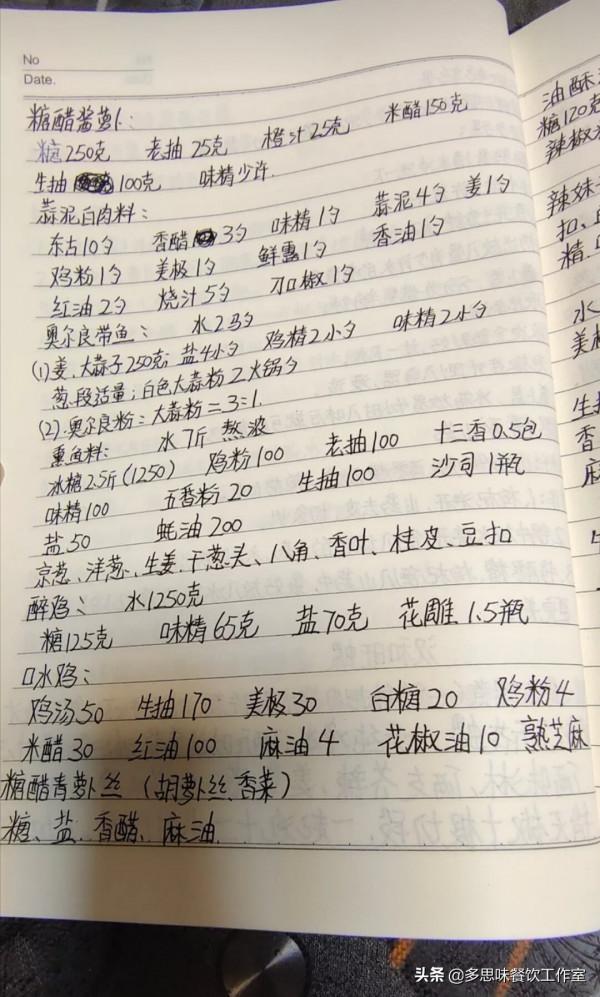 No
Date.
糖醋酱萝卜:
糖250克 老抽25克 橙汁25克 米醋150克
生抽 100克 味精少许.
蒜泥白肉料:
东古10勺 香醋 3勺 味精1勺 蒜泥4勺 姜1勺
鸡粉1勺 美极1勺 鲜露1勺 香油1勺
红油2勺 烧汁5勺 刀口椒1勺
奥尔良带鱼: 水2马勺
(1)姜.大蒜子250克; 盐4小勺 鸡精2小勺 味精2小勺
葱.段适量;白色大蒜粉2火锅勺
(2).奥尔良粉:大蒜粉=3:1.
熏鱼料: 水7斤 熬浓
冰糖2.5斤(1250) 鸡粉100 老抽100 十三香0.5包
味精100 五香粉20 生抽100 沙司1瓶
盐50 蚝油200
京葱、洋葱、生姜.干葱头、八角、香叶、桂皮、豆扣
醉鸡: 水1250克
糖125克 味精65克 盐70克 花雕1.5瓶
口水鸡:
鸡汤50 生抽170 美极30 白糖20 鸡粉4
米醋30 红油100 麻油4 花椒油10 熟芝麻
糖醋青萝卜丝(胡萝卜丝、香菜)
糖、盐、香醋、麻油
油酥
糖120克
辣椒
辣妹
扣、
精.
水
美极
生抽
香
麻
头条 @多思味餐饮工作室